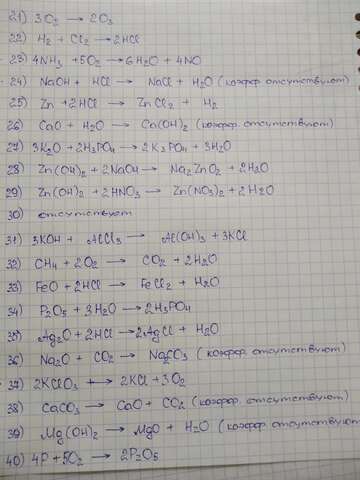 21) 3O₂ → 2O₃
22) H₂ + Cl₂ → 2HCl
23) 4NH₃ + 5O₂ → 6H₂O + 4NO
24) NaOH + HCl → NaCl + H₂O (коэфф. отсутствуют)
25) Zn + 2HCl → ZnCl₂ + H₂
26) CaO + H₂O → Ca(OH)₂ (коэфф. отсутствуют)
27) 3K₂O + 2H₃PO₄ → 2K₃PO₄ + 3H₂O
28) Zn(OH)₂ + 2NaOH → Na₂ZnO₂ + 2H₂O
29) Zn(OH)₂ + 2HNO₃ → Zn(NO₃)₂ + 2H₂O
30) отсутствует
31) 3KOH + AlCl₃ → Al(OH)₃ + 3KCl
32) CH₄ + 2O₂ → CO₂ + 2H₂O
33) FeO + 2HCl → FeCl₂ + H₂O
34) P₂O₅ + 3H₂O → 2H₃PO₄
35) Ag₂O + 2HCl → 2AgCl + H₂O
36) Na₂O + CO₂ → Na₂CO₃ (коэфф. отсутствуют)
37) 2KClO₃ → 2KCl + 3O₂
38) CaCO₃ → CaO + CO₂ (коэфф. отсутствуют)
39) Mg(OH)₂ → MgO + H₂O (коэфф. отсутствуют
40) 4P + 5O₂ → 2P₂O₅